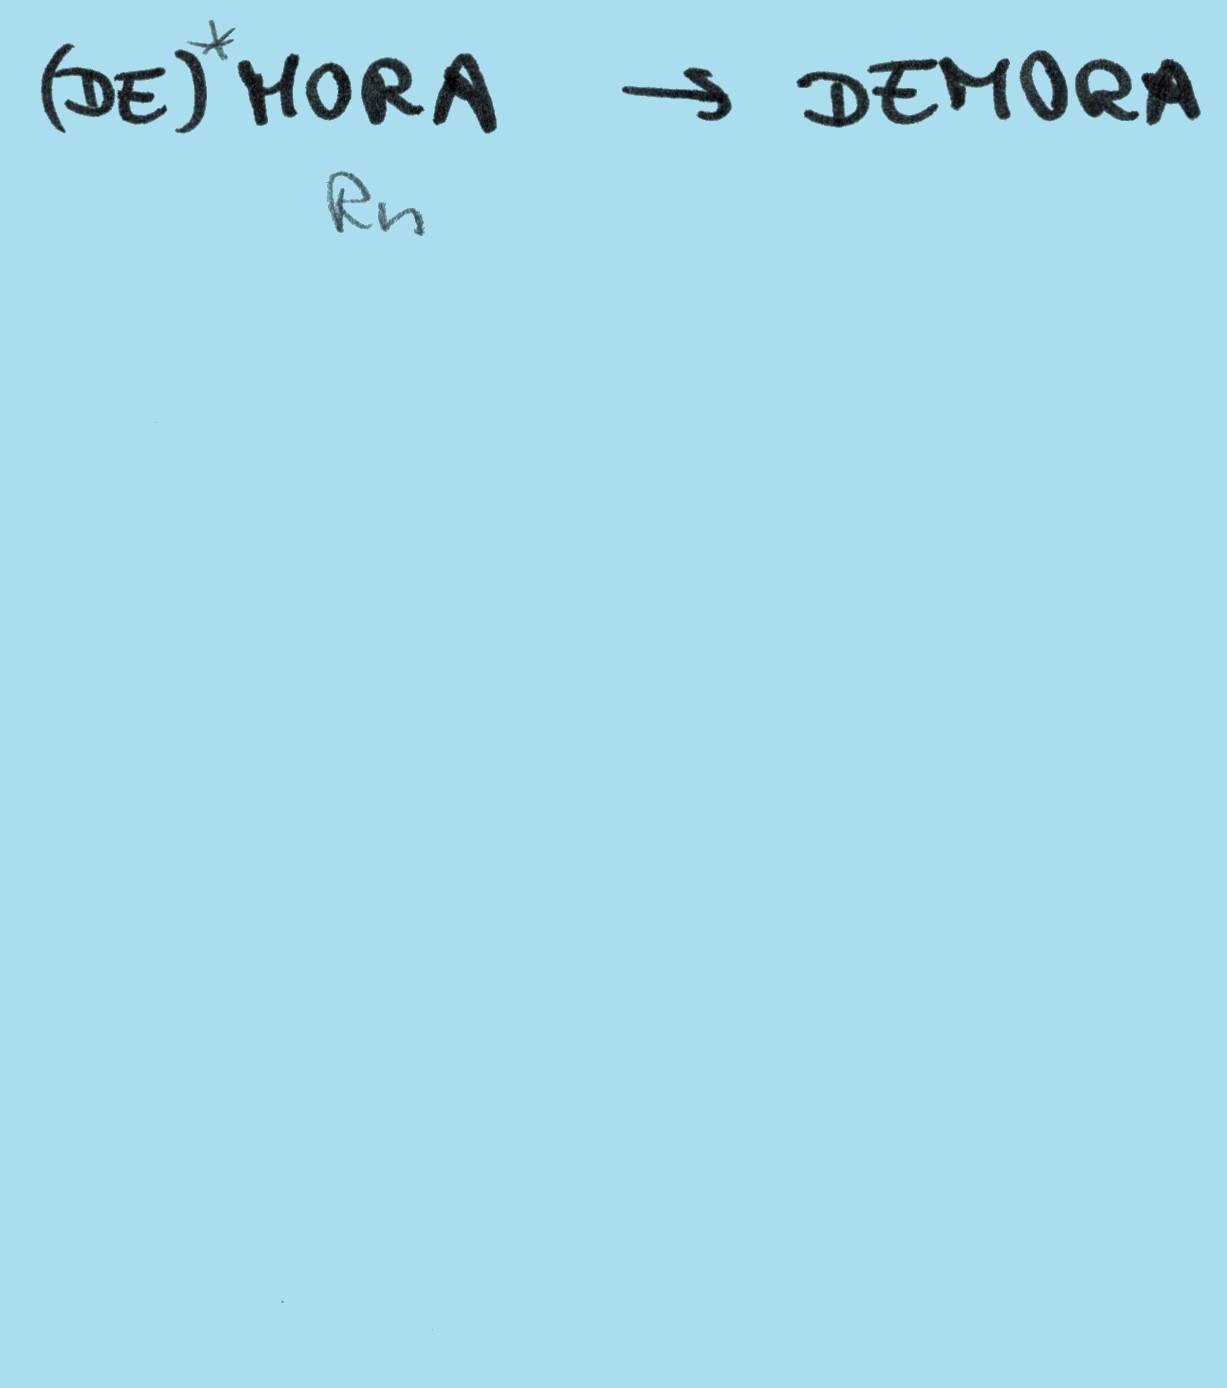 (DE)*MORA → DEMORA
Rn